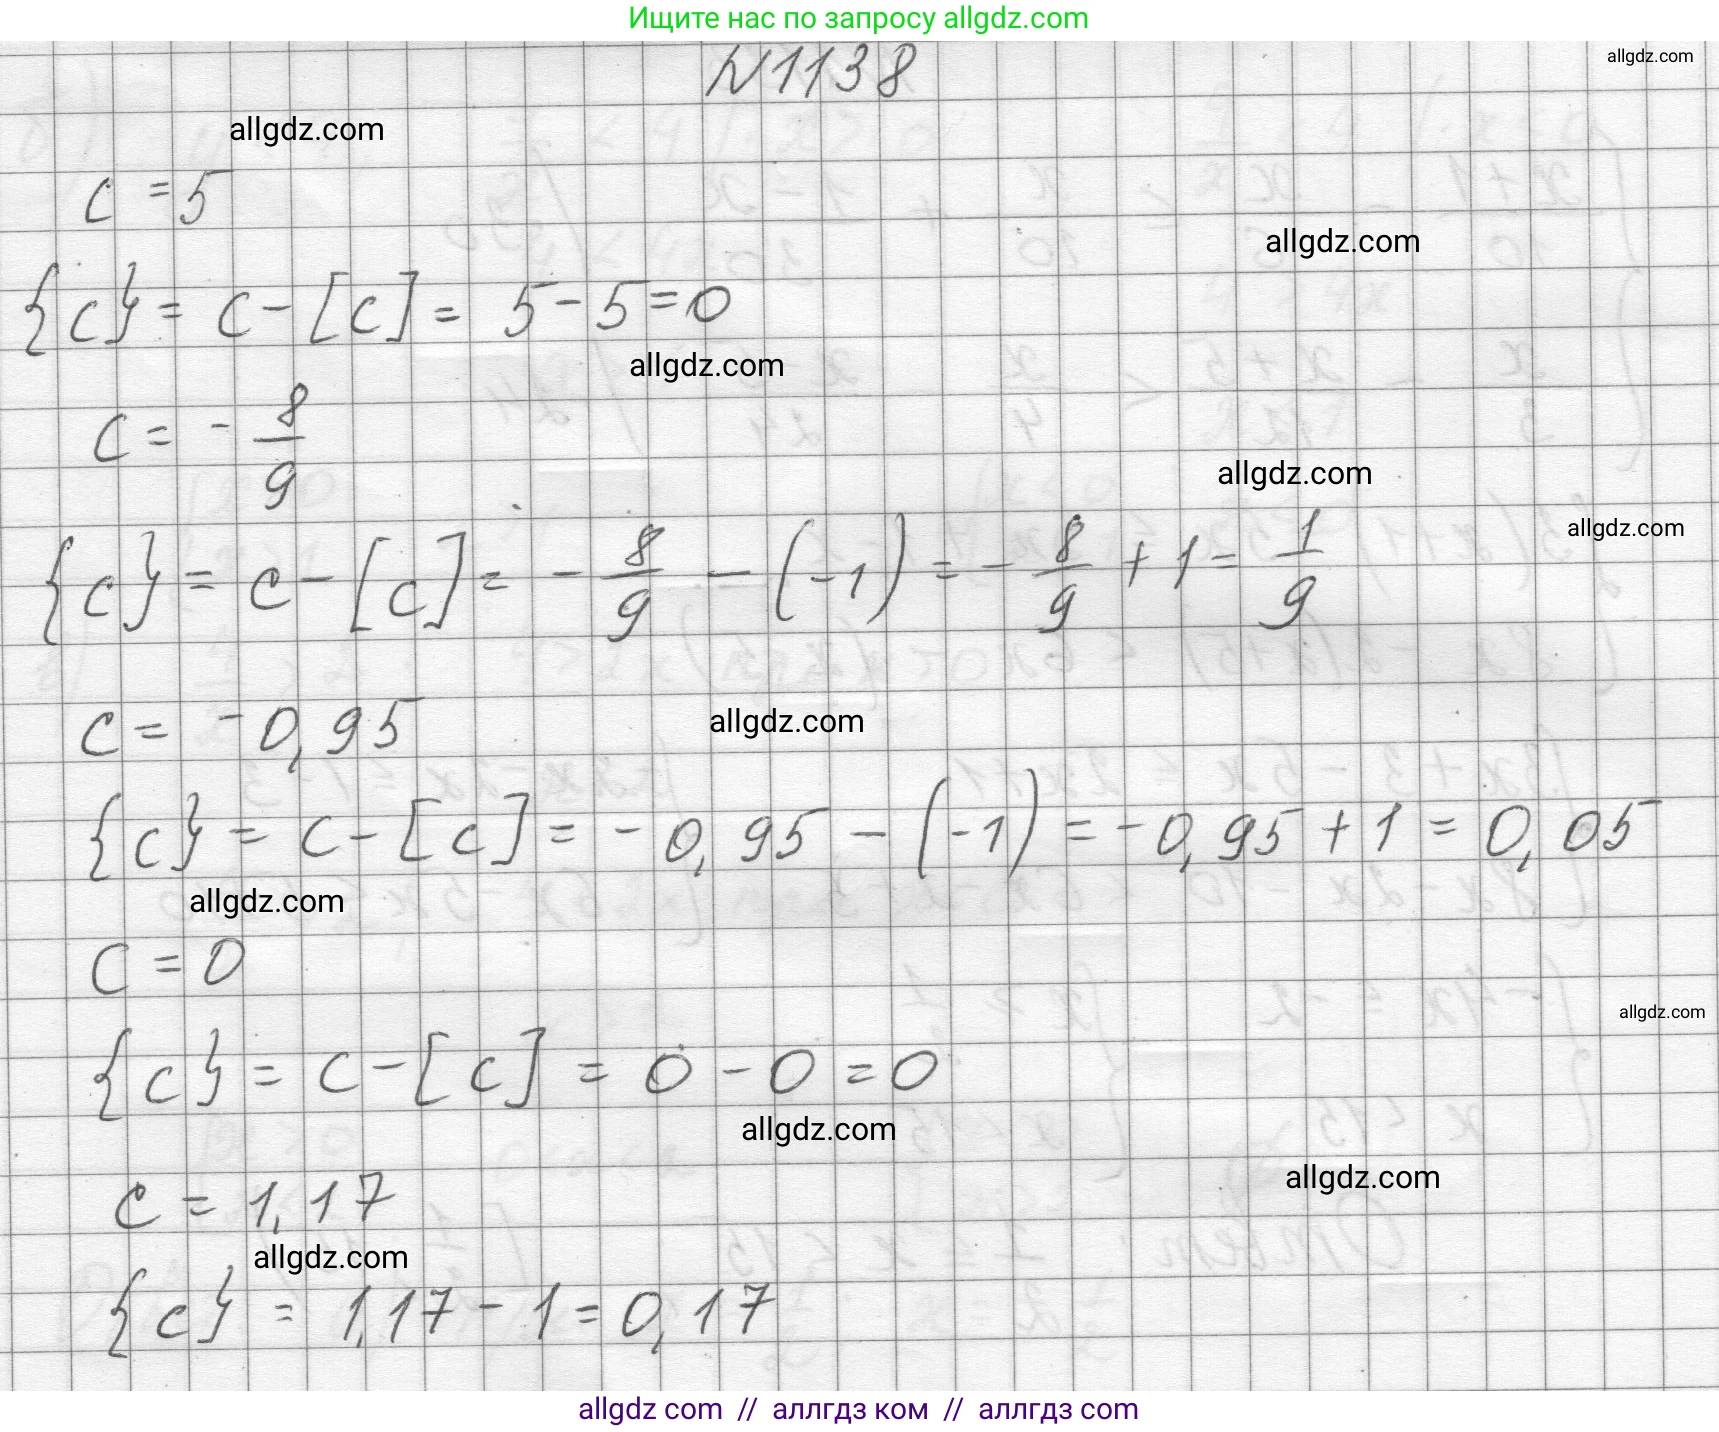 Ищите нас по запросу allgdz.com
N1138
allgdz.com
allgdz.com
c = 5
allgdz.com
{c} = c - [c] = 5 - 5 = 0
allgdz.com
c = - 8/9
allgdz.com
allgdz.com
{c} = c - [c] = - 8/9 - (-1) = - 8/9 + 1 = 1/9
c = -0,95
allgdz.com
{c} = c - [c] = -0,95 - (-1) = -0,95 + 1 = 0,05
allgdz.com
c = 0
allgdz.com
{c} = c - [c] = 0 - 0 = 0
allgdz.com
allgdz.com
c = 1,17
allgdz.com
{c} = 1,17 - 1 = 0,17
allgdz com // аллгдз ком // аллгдз com